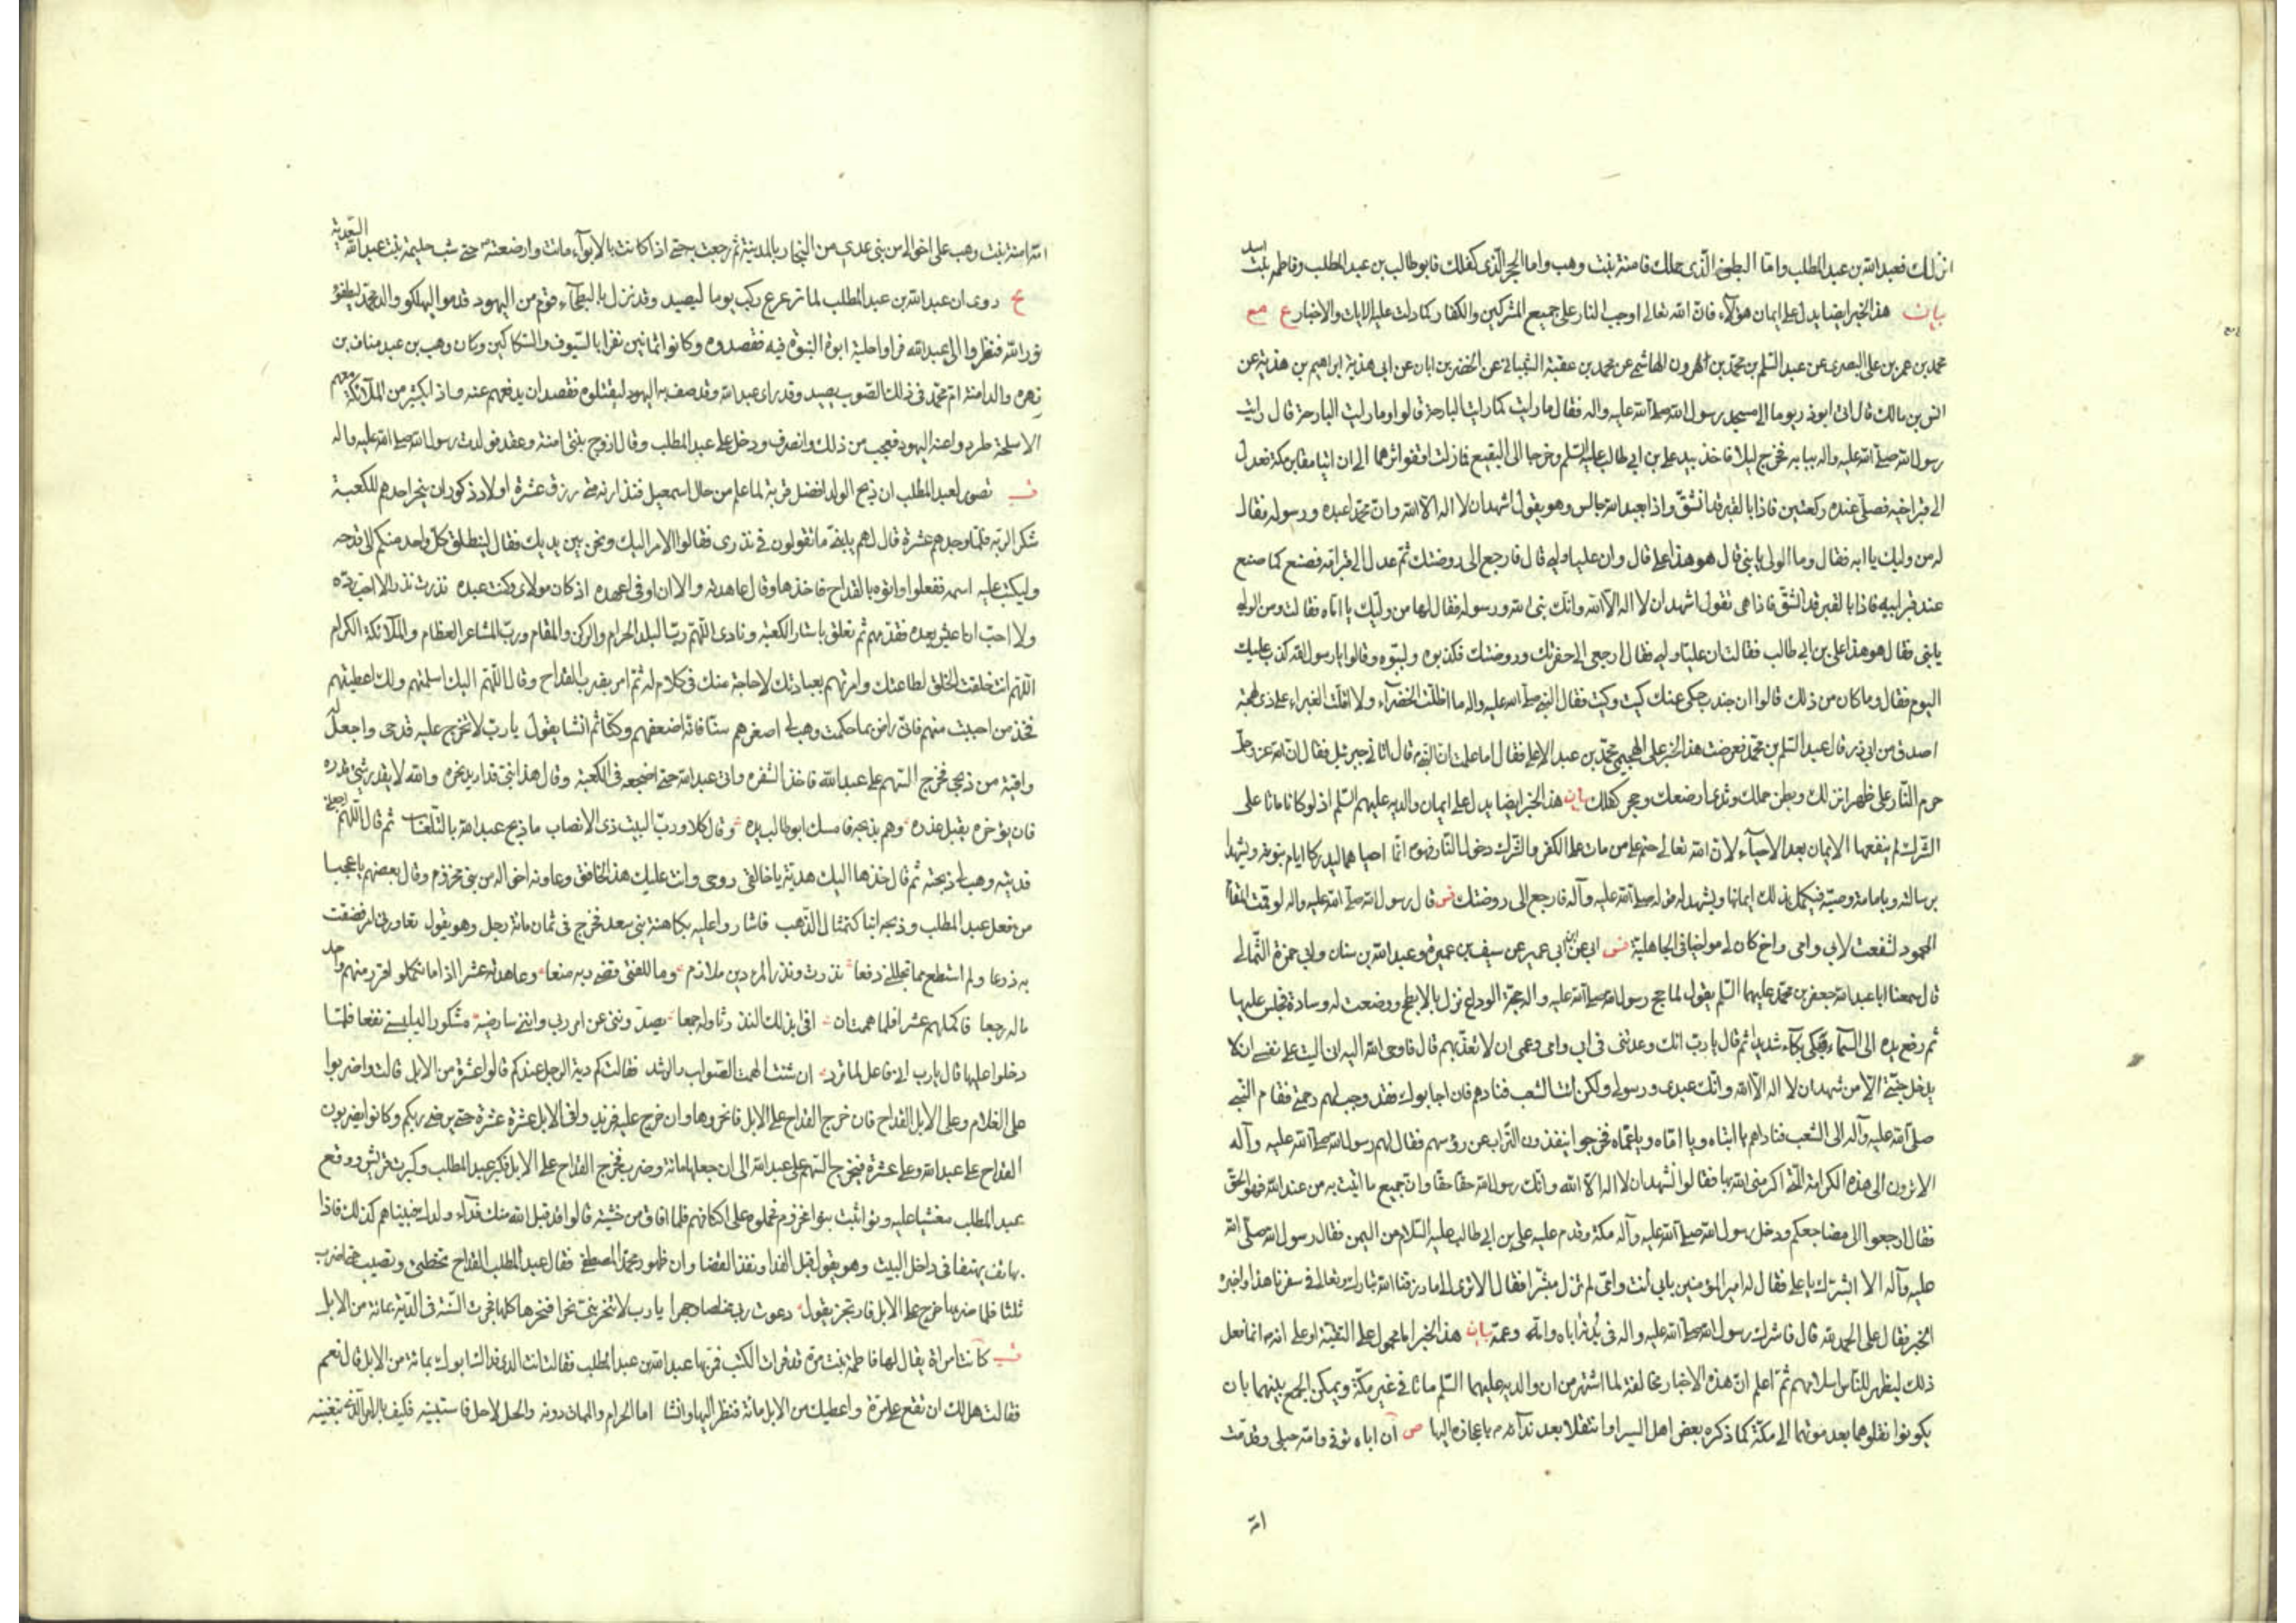 انزلك فعبد الله بن عبد المطلب واما البطن الذى حملك فامنة بنت وهب واما الحجر الذى كفلك فابو طالب بن عبد المطلب وفاطمه بنت اسد
بيان هذا الخبر ايضا يدل على ايمان هؤلاء فان الله تعالى اوجب النار على جميع المشركين والكفار كما دلت عليه الايات والاخبار ع مع
محمد بن عمر بن على البصرى عن عبد السلم بن محمد بن هرون الهاشمى عن محمد بن عقبة الشيبانى عن الخضر بن ابان عن ابى هدية ابراهيم بن هدية عن
انس بن مالك قال اتى ابوذر يوما الى مسجد رسول الله صلى الله عليه واله فقال ما رايت كما رايت البارحة قالوا وما رايت البارحة قال رايت
رسول الله صلى الله عليه واله ببابه فخرج ليلا فاخذ بيد على بن ابى طالب عليه السلم وخرجا الى البقيع فما زلت اقفو اثرهما الى ان اتيا مقابر مكة فعدل
الى قبر ابيه فصلى عنده ركعتين فاذا بالقبر قد انشق واذا بعبد الله جالس وهو يقول اشهد ان لا اله الا الله وان محمدا عبده ورسوله فقال
له من وليك يا ابه فقال وما الولى يا بنى قال هو هذا على قال وان عليا وليى قال فارجع الى روضتك ثم عدل الى قبر امه فصنع كما صنع
عند قبر ابيه فاذا بالقبر قد انشق فاذا هى تقول اشهد ان لا اله الا الله وانك نبى الله ورسوله فقال لها من وليك يا اماه فقالت ومن الولى
يا بنى فقال هو هذا على بن ابى طالب فقالت ان عليا وليى فقال ارجعى الى حفرتك وروضتك فكذبوه ولببوه وقالوا يا رسول الله كذب عليك
اليوم فقال وما كان من ذلك قالوا ان جندب حكى عنك كيت وكيت فقال النبى صلى الله عليه واله ما اظلت الخضراء ولا اقلت الغبراء على ذى لهجة
اصدق من ابى ذر قال عبد السلم بن محمد فعرضت هذا الخبر على الهجيمى محمد بن عبد الاعلى فقال اما علمت ان النبى قال اتانى جبرئيل فقال ان الله عز وجل
حرم النار على ظهر انزلك وبطن حملك وثدى ارضعك وحجر كفلك بيان هذا الخبر ايضا يدل على ايمان والديه عليهم السلم اذ لو كانا ماتا على
الشرك لم ينفعهما الايمان بعد الاحياء لان الله تعالى حتم على من مات على الكفر والشرك دخول النار فهو انما احياهما ليدركا ايام نبوته ويشهدا
برسالته وبامامة وصيه فيكمل بذلك ايمانهما ويشهد له قوله صلى الله عليه وآله فارجع الى روضتك فس قال رسول الله صلى الله عليه واله لو قمت المقام
المحمود لشفعت لابى وامى واخ كان لى مواخيا فى الجاهلية فس ابى عن ابن ابى عمير عن سيف بن عميرة وعبد الله بن سنان وابى حمزة الثمالى
قال سمعنا ابا عبد الله جعفر بن محمد عليهما السلم يقول لما حج رسول الله صلى الله عليه واله حجة الوداع نزل بالابطح ووضعت له وسادة فجلس عليها
ثم رفع يده الى السماء وبكى بكاء شديدا ثم قال يا رب انك وعدتنى فى ابى وامى وعمى ان لا تعذبهم قال فاوحى الله اليه انى اليت على نفسى ان لا
يدخل جنتى الا من شهد ان لا اله الا الله وانك عبدى ورسولى ولكن ائت الشعب فنادهم فان اجابوك فقد وجبت لهم رحمتى فقام النبى
صلى الله عليه وآله الى الشعب فناداهم يا ابتاه ويا اماه ويا عماه فخرجوا ينفضون التراب عن رؤسهم فقال لهم رسول الله صلى الله عليه وآله
الا ترون الى هذه الكرامة التى اكرمنى الله بها فقالوا نشهد ان لا اله الا الله وانك رسول الله حقا حقا وان جميع ما اتيت به من عند الله فهو الحق
فقال ارجعوا الى مضاجعكم ودخل رسول الله صلى الله عليه وآله مكة وقدم عليه على بن ابى طالب عليه السلام من اليمن فقال رسول الله صلى الله
عليه وآله الا ابشرك يا على فقال له امير المؤمنين بابى انت وامى لم تزل مبشرا فقال الا ترى الى ما رزقنا الله تبارك وتعالى فى سفرنا هذا واخبره
الخبر فقال على الحمد لله قال فاشرك رسول الله صلى الله عليه واله فى بدنه اباه وامه وعمه بيان هذا الخبر اما محمول على التقية او على انه انما فعل
ذلك ليظهر للناس اسلامهم ثم اعلم ان هذه الاخبار مخالفة لما اشتهر من ان والديه عليهما السلم ماتا فى غير مكة ويمكن الجمع بينهما بان
يكونوا نقلوهما بعد موتهما الى مكة كما ذكره بعض اهل السير او انتقلا بعد ندائه باعجازه اليها ص ان اباه توفى وامه حبلى وقدمت
امه
امه امنة بنت وهب على اخواله من بنى عدى من النجار بالمدينة ثم رجعت به حتى اذا كانت بالابواء ماتت وارضعته حتى شب حليمة بنت عبد الله السعدية
يج روى ان عبد الله بن عبد المطلب لما ترعرع ركب يوما ليصيد وقد نزل بالبطحاء قوم من اليهود قدموا ليهلكوا والد محمد ليطفؤا
نور الله فنظروا الى عبد الله فراوا حلية ابوة النبوة فيه فقصدوه وكانوا ثمانين نفرا بالسيوف والسكاكين وكان وهب بن عبد مناف بن
زهره والد امنة ام محمد فى ذلك الصوب يصيد وقد راى عبد الله وقد صف به اليهود ليقتلوه فقصد ان يدفعهم عنه واذا بكثير من الملائكة معهم
الاسلحة طردوا عنه اليهود فعجب من ذلك وانصرف ودخل على عبد المطلب وقال ازوج بنتى امنة وعقد فولدت رسول الله صلى الله عليه واله
قب تصور لعبد المطلب ان ذبح الولد افضل قربة لما علم من حال اسمعيل فنذر انه متى رزق عشرة اولاد ذكور ان ينحر احدهم للكعبة
شكرا لربه فلما وجدهم عشرة قال لهم يا بنى ما تقولون فى نذرى فقالوا الامر اليك ونحن بين يديك فقال لينطلق كل واحد منكم الى قدحه
وليكتب عليه اسمه ففعلوا واتوه بالقداح فاخذها وقال عاهدته والان اوفى عهده اذ كان مولاى وكنت عبده نذرت نذرا لا احب رده
ولا احب ان اعيش بعده فقدمهم ثم تعلق باستار الكعبة ونادى اللهم رب البلد الحرام والركن والمقام ورب المشاعر العظام والملائكة الكرام
اللهم انت خلقت الخلق لطاعتك وامرتهم بعبادتك لا حاجة منك فى كلام له ثم امر بضرب القداح وقال اللهم اليك اسلمتهم ولك اعطيتهم
فخذ من احببت منهم فانى راض بما حكمت وهب لى اصغرهم سنا فانه اضعفهم ركنا ثم انشا يقول يا رب لا تخرج عليه قدحى واجعل له
واقية من ذبحى فخرج السهم على عبد الله فاخذ الشفره واتى عبد الله حتى اضجعه فى الكعبة وقال هذا بنى قد اريد نحره والله لا يقدر شئ قدره
فان يؤخره يقبل عذره وهم بذبحه فامسك ابو طالب يده وقال كلا ورب البيت ذى الانصاب ما ذبح عبد الله بالتلعاب ثم قال اللهم اجعلنى
فديته وهب لى ذبحته ثم قال خذها اليك هدية يا خالقى روحى وانت مليك هذا الخافق وعاونه اخواله من بنى مخزوم وقال بعضهم يا عجبا
من فعل عبد المطلب وذبحه ابنا كتمثال الذهب فاشاروا عليه بكاهنة بنى سعد فخرج فى ثمان مائة رجل وهو يقول تعاورنى امر فضقت
به ذرعا ولم استطع مما تجللنى دفعا نذرت ونذر المرء دين ملازم وما للفتى مما قضى ربه منعا وعاهدته عشرا اذا ما تكملوا اقرب منهم واحد
ما له رجعا فاكملهم عشرا فلما هممت ان افئ بذلك النذر ثار له جمعا يصدوننى عن امر ربى واننى سارضيه مشكورا ليلبسنى نفعا فلما
دخلوا عليها قال يا رب انى فاعل لما ترد ان شئت الهمت الصواب والرشد فقالت كم دية الرجل عندكم قالوا عشرة من الابل قالت واضربوا
على الغلام وعلى الابل القداح فان خرج القداح على الابل فانحروها وان خرج عليه فزيدوا فى الابل عشرة عشرة حتى يرضى ربكم وكانوا يضربون
القداح على عبد الله وعلى عشرة فيخرج السهم على عبد الله الى ان جعلها مائة وضرب فخرج القداح على الابل فكبر عبد المطلب وكبرت قريش ووقع
عبد المطلب مغشيا عليه وتواثبت بنو مخزوم فحملوه على اكتافهم فلما افاق من غشيته قالوا قد قبل الله منك فداء ولدك فبيناهم كذلك فاذا
بهاتف يهتف فى داخل البيت وهو يقول قبل الفداء ونفذ القضا وان ظهور محمد المصطفى فقال عبد المطلب القداح تخطئ وتصيب حتى اضرب
ثلثا فلما ضربها خرج على الابل فارتجز يقول دعوت ربى مخلصا وجهرا يا رب لا تنحر بنى نحرا فنحرها كلها فجرت السنة فى الدية بمائة من الابل
قب كانت امراة يقال لها فاطمة بنت مرة قد قرات الكتب فمر بها عبد الله بن عبد المطلب فقالت انت الذى فداك ابوك بمائة من الابل قال نعم
فقالت هل لك ان تقع على مرة واعطيك من الابل مائة فنظر اليها وانشا اما الحرام فالممات دونه والحل لا حل فاستبينه فكيف بالامر الذى تبغينه